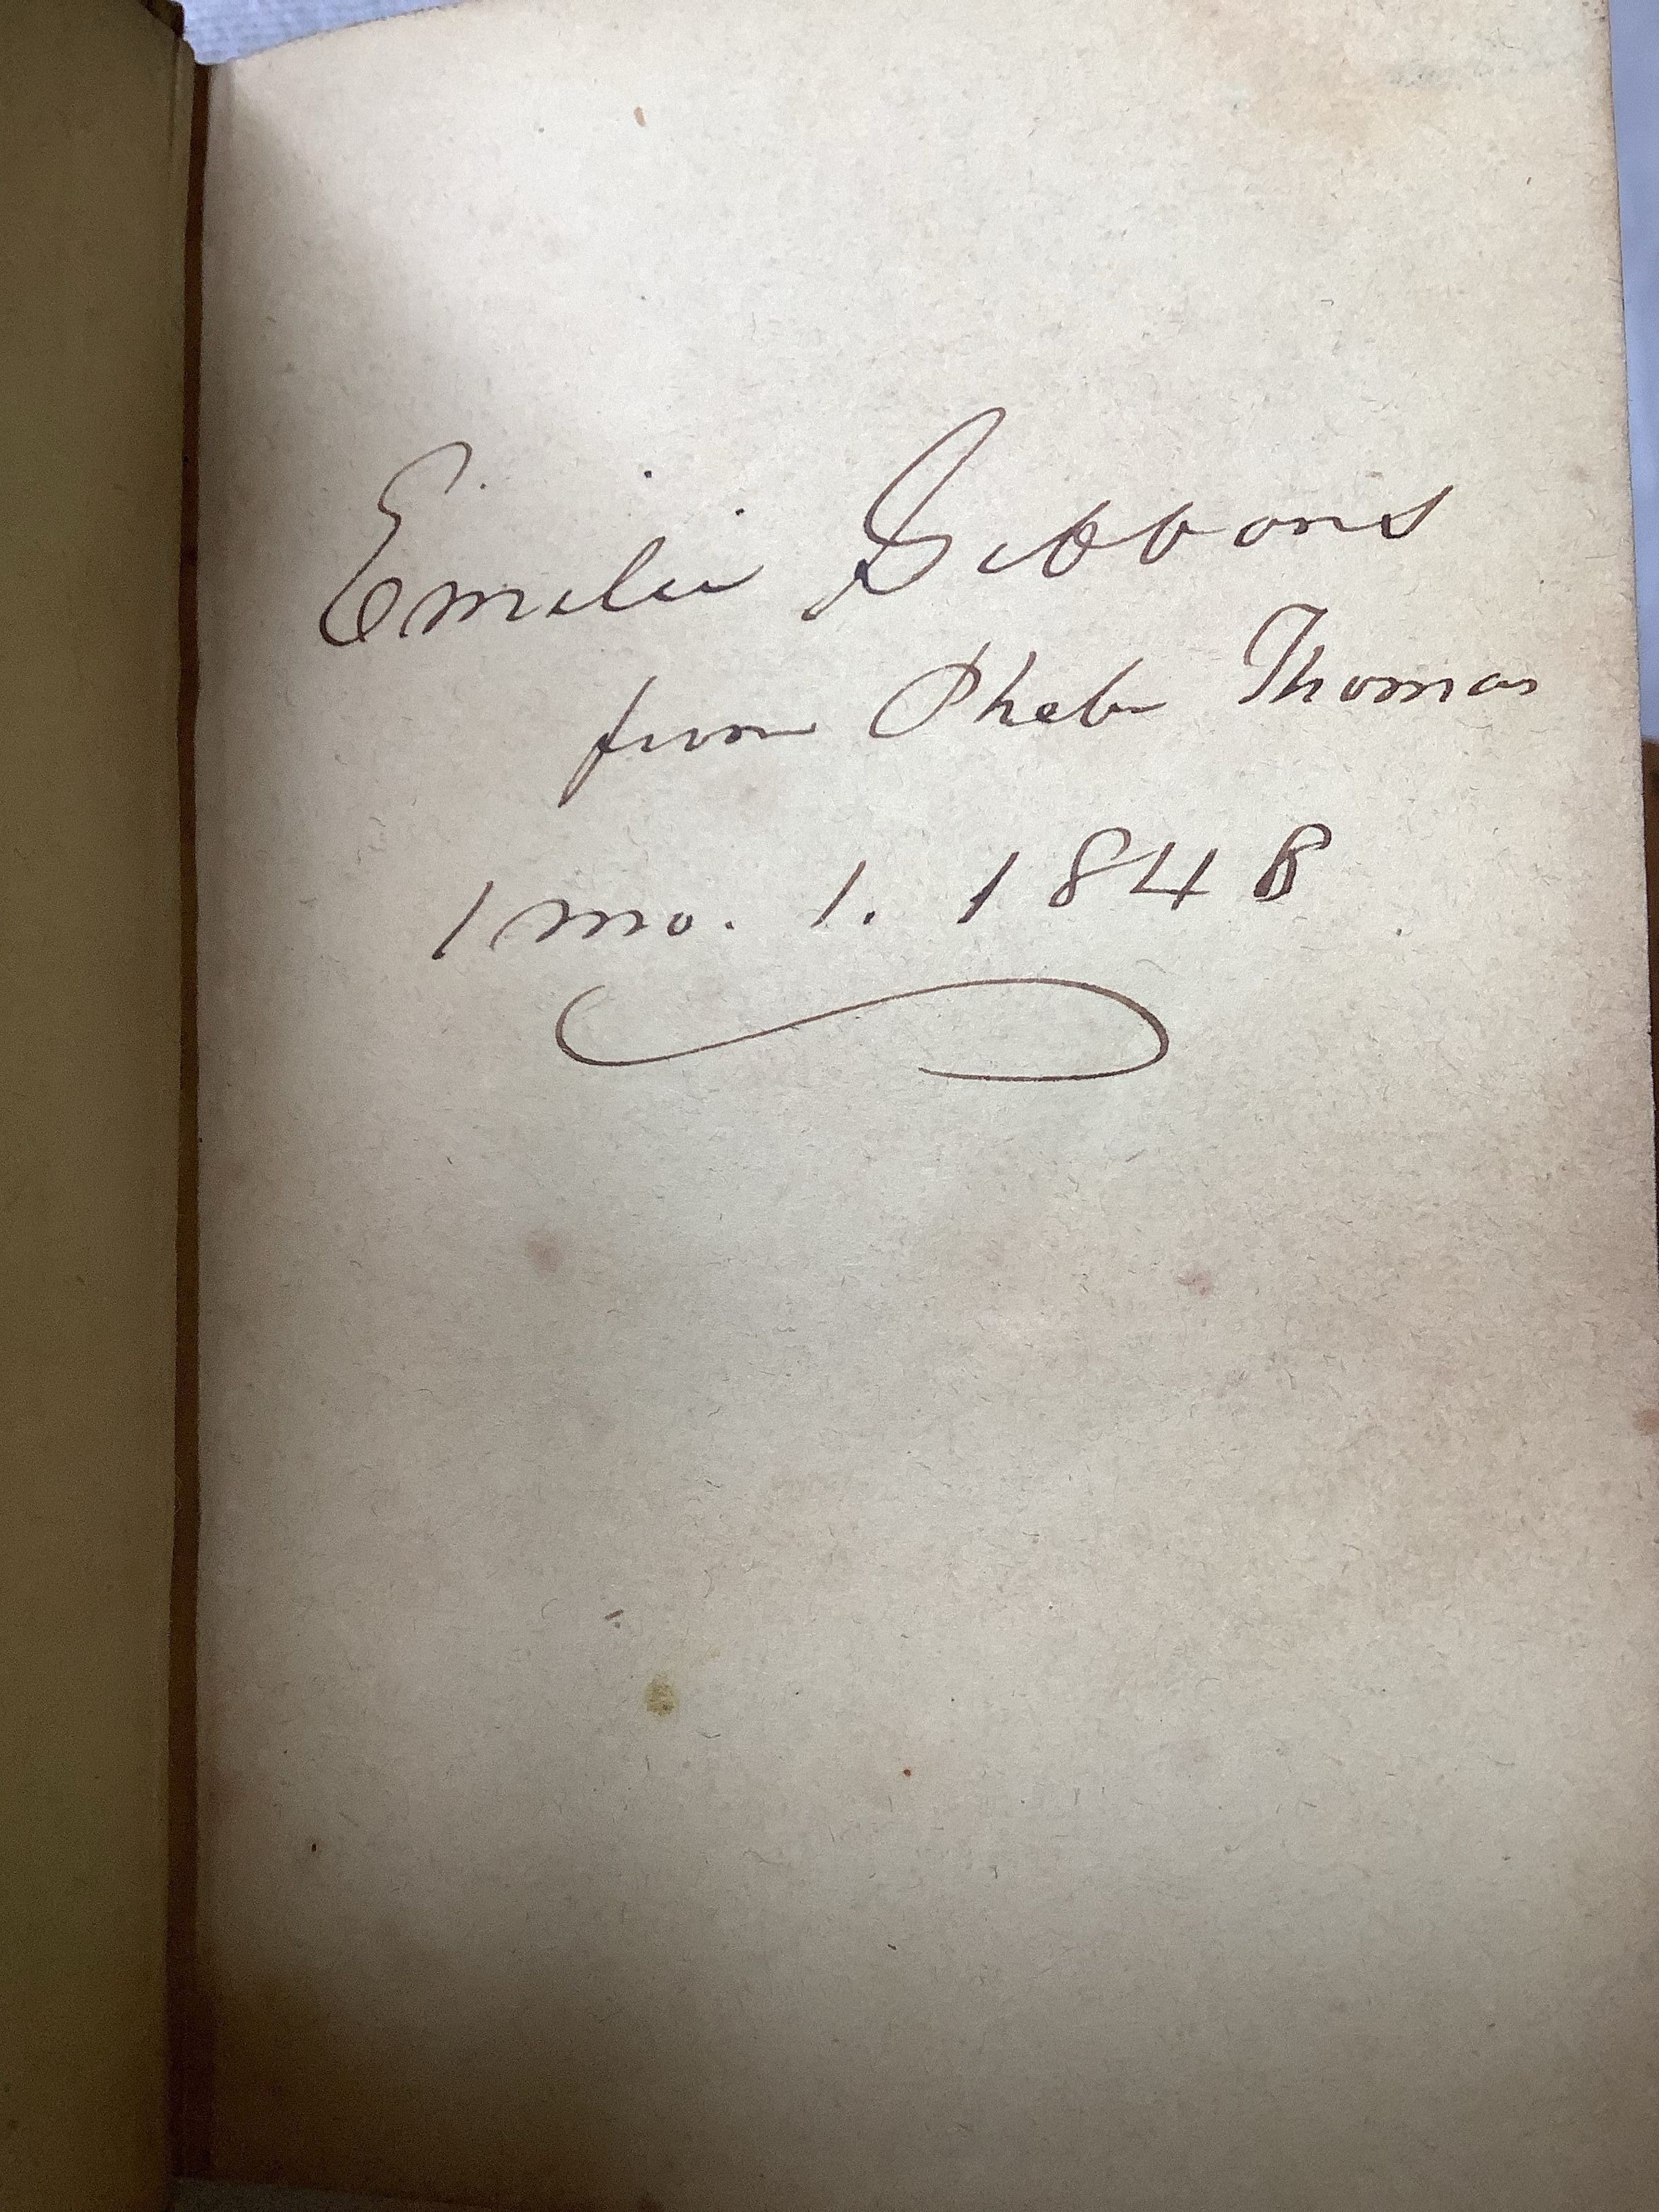 Emilie Gibbons
from Phebe Thomas
1 mo. 1. 1848